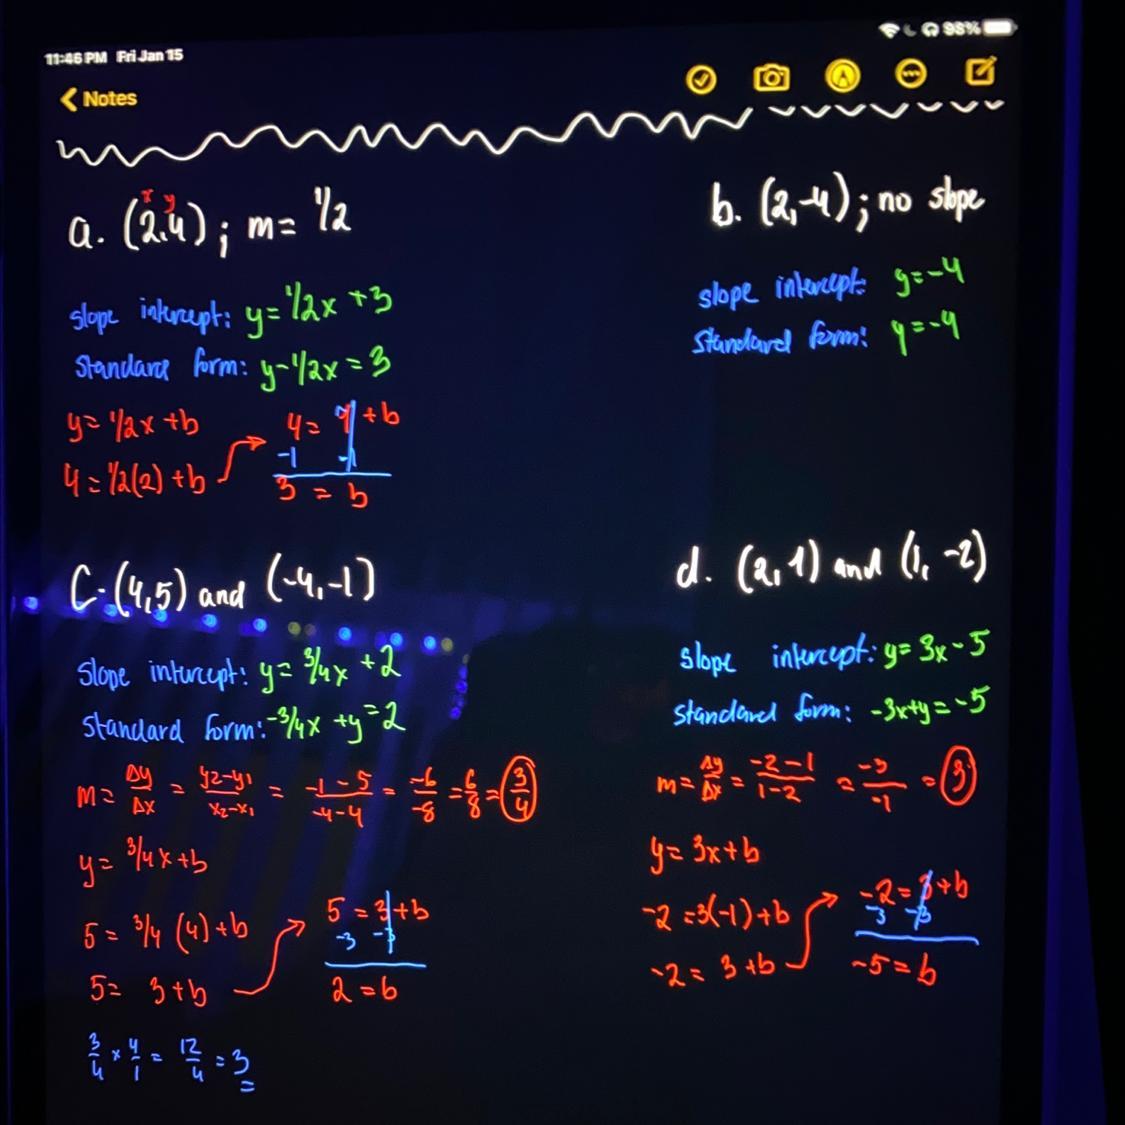 11:46 PM Fri Jan 15
98%
Notes
a. (2,4); m= 1/2
x y
slope intercept: y= 1/2x +3
Standard form: y-1/2x = 3
y= 1/2x +b
4 = 1/2(2) +b
4 = 1 +b
-1 -1
3 = b
b. (2,-4); no slope
slope intercept: y=-4
Standard form: y=-4
C. (4,5) and (-4,-1)
slope intercept: y= 3/4x +2
Standard form: -3/4x +y =2
m= Δy/Δx = y2-y1/x2-x1 = -1-5/-4-4 = -6/-8 = 6/8 = 3/4
y= 3/4x +b
5= 3/4 (4) +b
5= 3+b
5 = 3 +b
-3 -3
2 = b
3/4 × 4/1 = 12/4 = 3
d. (2,1) and (1,-2)
slope intercept: y= 3x-5
Standard form: -3x+y=-5
m= Δy/Δx = -2-1/1-2 = -3/-1 = 3
y= 3x+b
-2 =3(-1)+b
-2= 3+b
-2= 3+b
-3 -3
-5=b